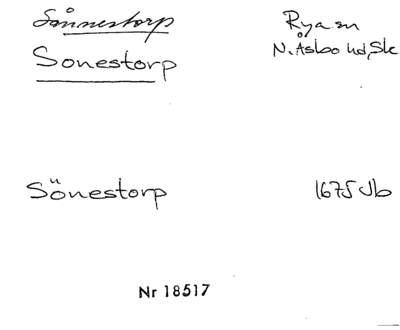 Sånnestorp Rya sn
Sonestorp N. Åsbo hd, Sk
Sönestorp 1675 Jb
Nr 18517